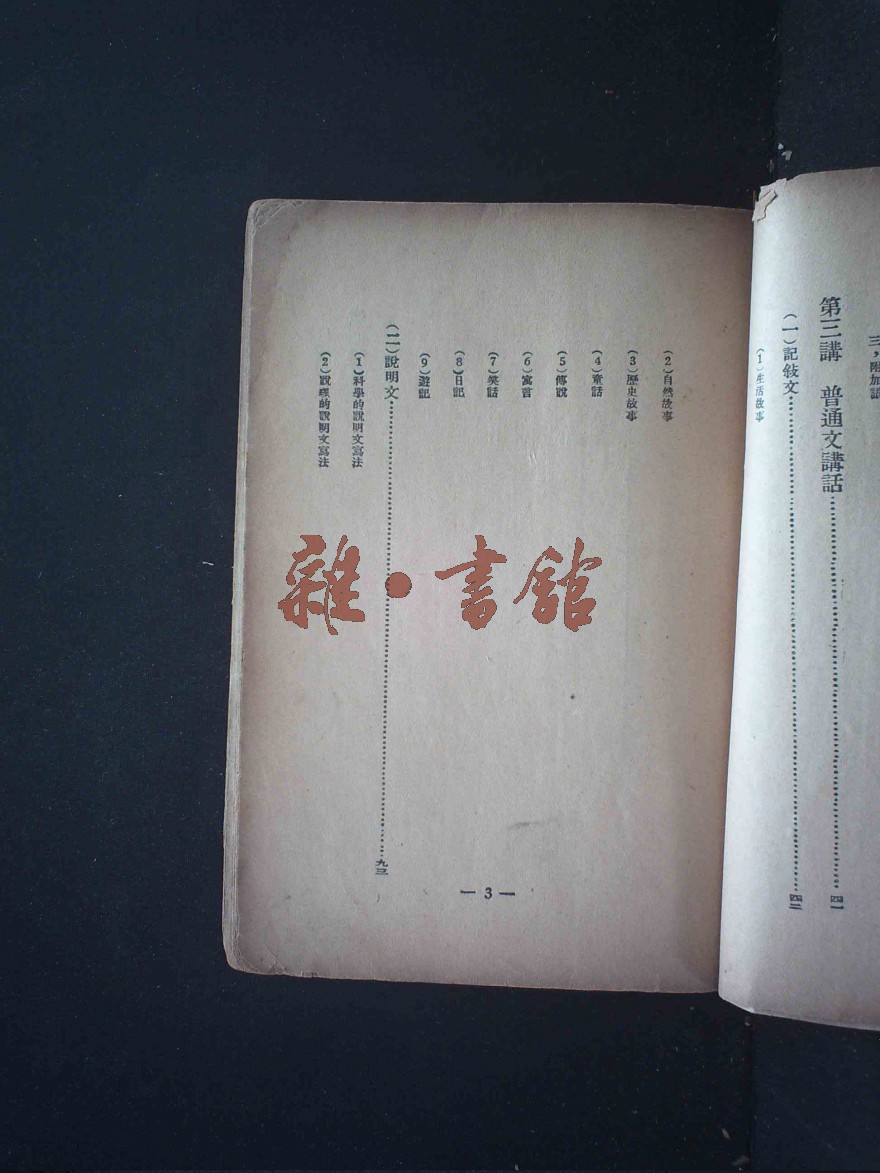 三，附加話
第三講　普通文講話⋯⋯四一
（一）記敍文⋯⋯四二
（1）生活故事
（2）自然故事
（3）歷史故事
（4）童話
（5）傳說
（6）寓言
（7）笑話
（8）日記
（9）遊記
（二）說明文⋯⋯九三
（1）科學的說明文寫法
（2）說理的說明文寫法
— 3 —
雜·書館